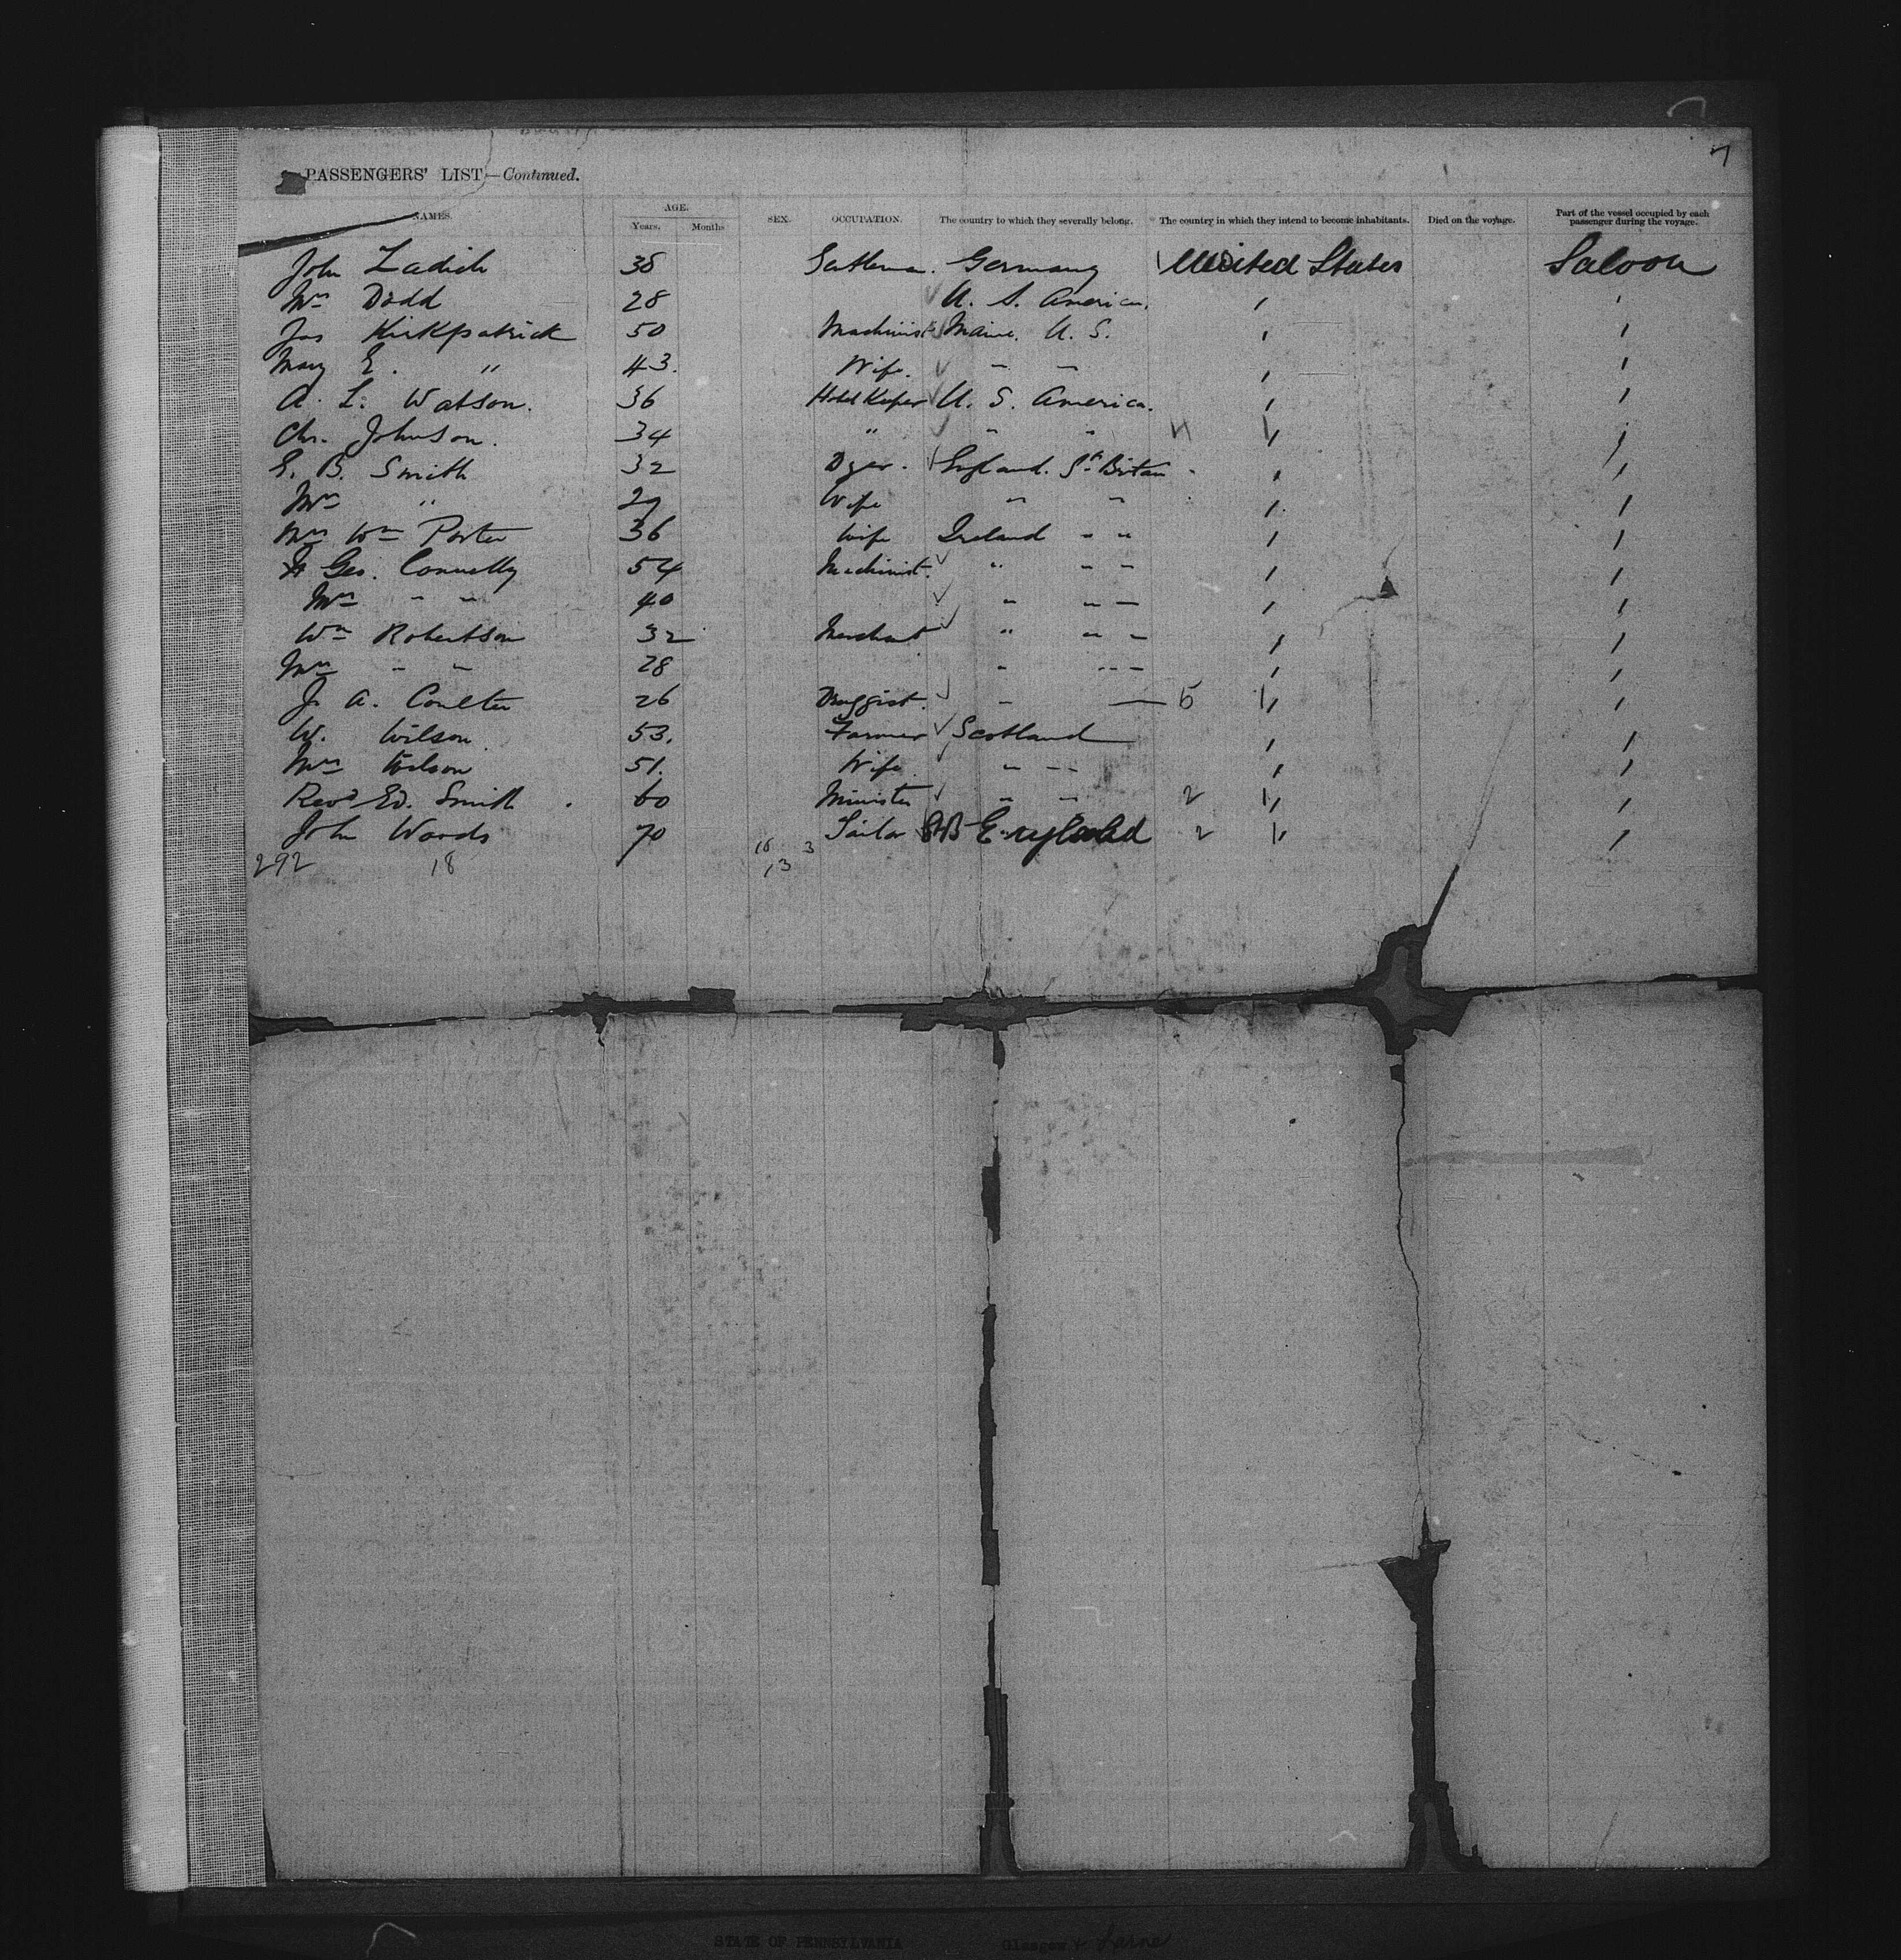 7
PASSENGERS' LIST—Continued.
NAMES. AGE. Years. Months SEX. OCCUPATION. The country to which they severally belong. The country in which they intend to become inhabitants. Died on the voyage. Part of the vessel occupied by each passenger during the voyage.
John Zadich 38 Germany United States Saloon
Mrs Dodd 28 U. S. America.
Jas Kirkpatrick 50 Machinist Maine. U. S.
Mary E. " 43. Wife. " "
A. L. Watson. 36 Hotel Keeper U. S. America.
Chr. Johnson. 34 " " "
E. B. Smith 32 Dyer. England. Gt Britain
Mrs " 29 Wife " "
Mrs Wm Porter 36 Wife Ireland " "
Geo. Connelly 54 Machinist. " " "
Mrs " " 40 " " "
Wm Robertson 32 Merchant " " "
Mrs " " 28 " " "
J. A. Coulter 26 Druggist. " 5 1
W. Wilson. 53. Farmer Scotland
Mrs Wilson 51. Wife " "
Revd Ed. Smith 60 Minister " " 2 1
John Woods 70 GB England 2 1
292 18 16 3
13
STATE OF PENNSYLVANIA Glasgow + Larne